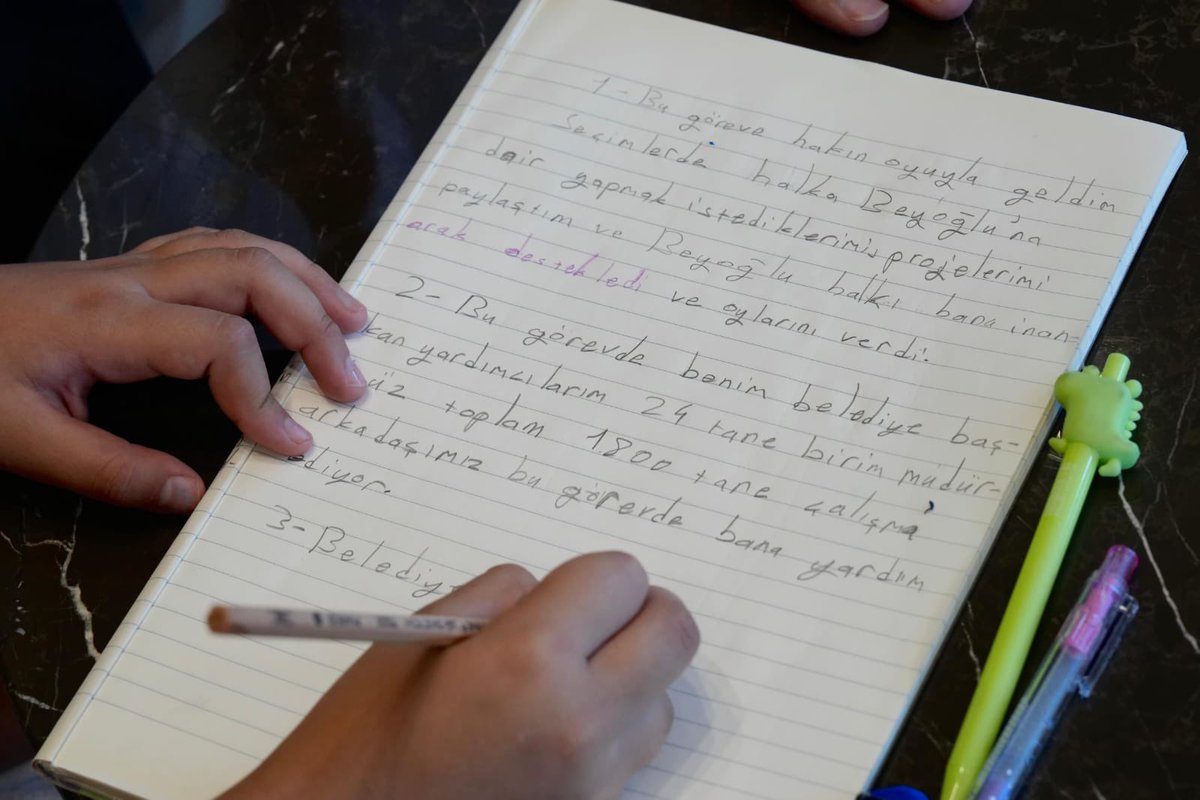 1- Bu göreve hakın oyuyla geldim
Seçimlerde halka Beyoğlu'na
dair yapmak istediklerimiş projelerimi
paylaştım ve Beyoğlu halkı bana inan-
arak destekledi ve oylarını verdi.
2- Bu görevde benim belediye baş-
kan yardımcılarım 24 tane birim müdür-
üz toplam 1800 tane çalışma
arkadaşımız bu görevde bana yardım
ediyor.
3- Belediye